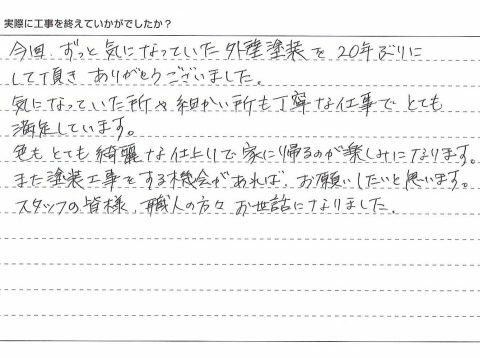 実際に工事を終えていかがでしたか？
今回、ずっと気になっていた外壁塗装を20年ぶりに
して頂きありがとうございました。
気になっていた所や細かい所も丁寧な仕事でとても
満足しています。
色もとても綺麗な仕上りで家に帰るのが楽しみになります。
また塗装工事をする機会があれば、お願いしたいと思います。
スタッフの皆様、職人の方々お世話になりました。